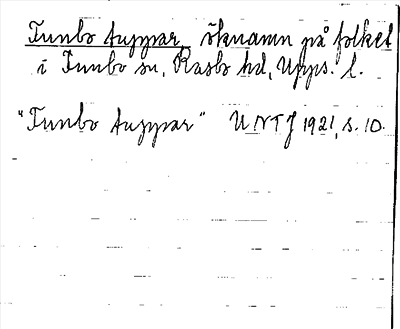 Tunbo tuppar, öknamn på folket
i Tunbo sn, Rasbo hd, Upps. l.
"Tunbo tuppar" UNTJ 1921, s. 10.